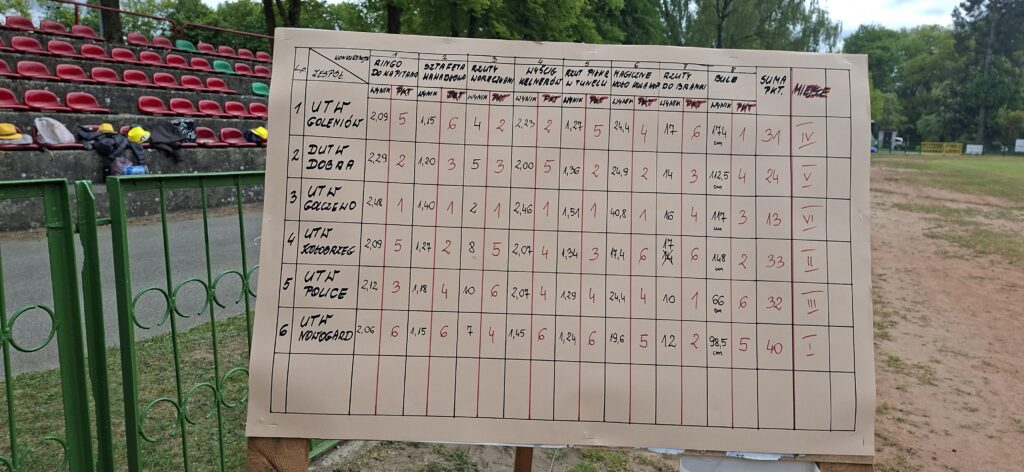 1 2 3 4 5 6 7 8
L.p. KONKURENCJE ZESPÓŁ RINGO DO KAPITANA SZTAFETA WAHADŁOWA RZUTY WORECZKAMI WYŚCIG KELNERÓW RZUT PIŁKĄ W TUNELU MAGICZNE KOŁO RZUTY DO BRAMKI BULE SUMA PKT. MIEJSCE
WYNIK PKT WYNIK PKT WYNIK PKT WYNIK PKT WYNIK PKT WYNIK PKT WYNIK PKT WYNIK PKT
1 UTW GOLENIÓW 2,09 5 1,15 6 4 2 2,23 2 1,27 5 24,4 4 17 6 174 cm 1 31 IV
2 DUTW DOBRA 2,29 2 1,20 3 5 3 2,00 5 1,36 2 24,9 2 14 3 112,5 cm 4 24 V
3 UTW GOLCZEWO 2,48 1 1,40 1 2 1 2,46 1 1,51 1 40,8 1 16 4 117 cm 3 13 VI
4 UTW KOŁOBRZEG 2,09 5 1,27 2 8 5 2,07 4 1,34 3 17,4 6 17 6 148 cm 2 33 II
5 UTW POLICE 2,12 3 1,18 4 10 6 2,07 4 1,29 4 24,4 4 10 1 66 cm 6 32 III
6 UTW NOWOGARD 2,06 6 1,15 6 7 4 1,45 6 1,24 6 19,6 5 12 2 98,5 cm 5 40 I